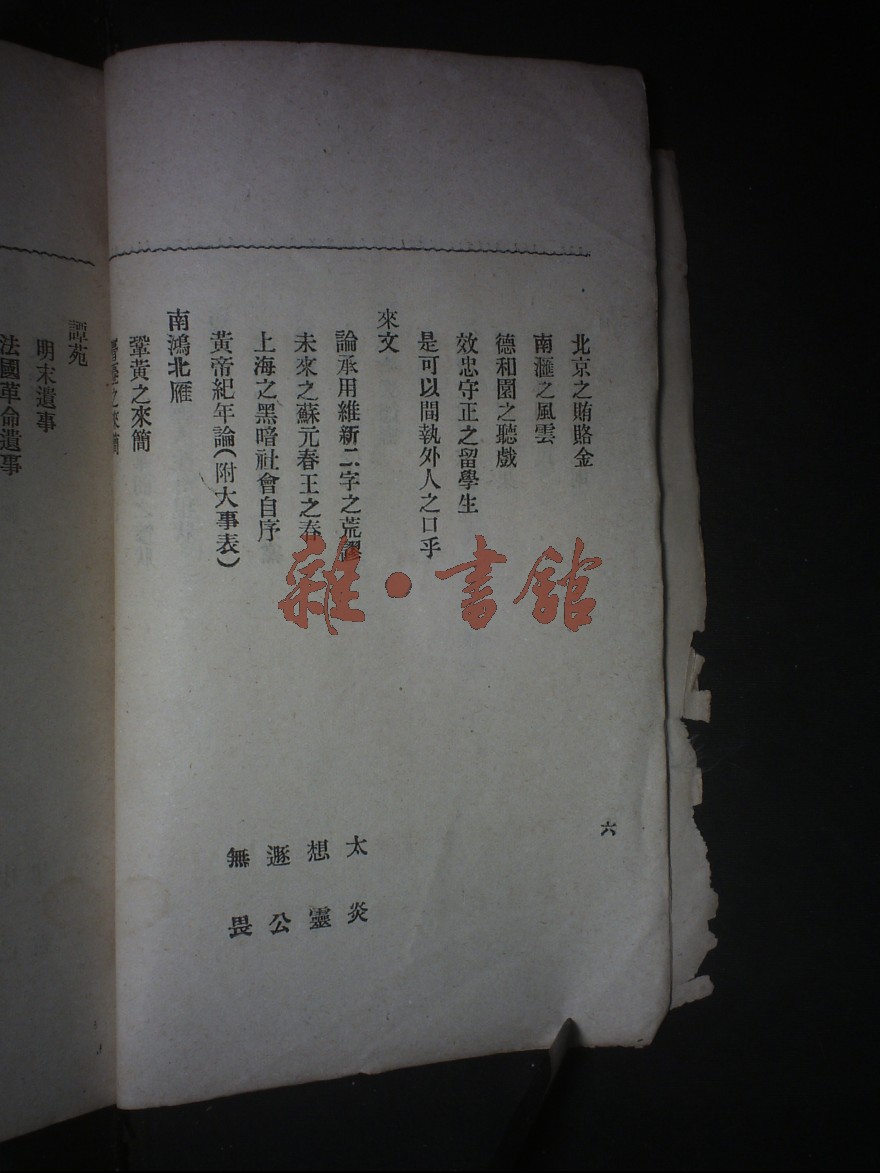 北京之賄賂金
南滙之風雲
德和園之聽戲
效忠守正之留學生
是可以間執外人之口乎
來文
論承用維新二字之荒謬 太炎
未來之蘇元春王之春 想靈
上海之黑暗社會自序 遯公
黃帝紀年論(附大事表) 無畏
南鴻北雁
鞏黃之來簡
之來簡
譚苑
明末遺事
法國革命遺事
六
雜·書館